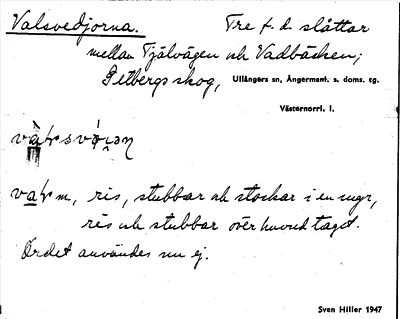 Valsvedjorna. Tre f.d. slåttar
mellan Tjälvägen och Vadbäcken;
Getbergsskog, Ullångers sn, Ångermanl. s. doms. tg.
Västernorrl. l.
m, ris, stubbar och stockar i en
ris och stubbar över huvud taget.
Ordet användes nu ej.
Sven Hiller 1947